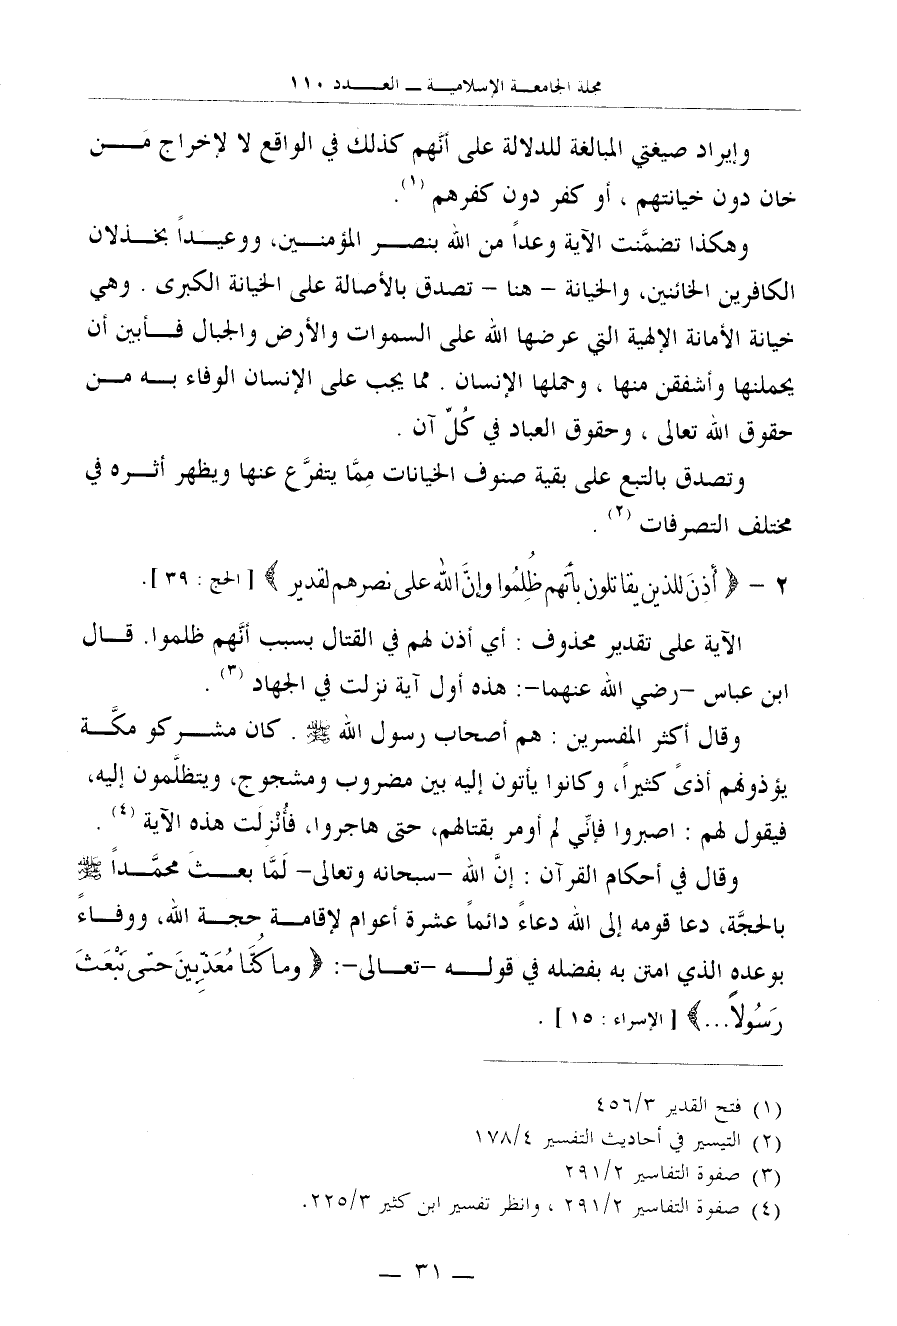 مجلة الجامعة الإسلامية – العدد ١١٠
وإيراد صيغتي المبالغة للدلالة على أنَّهم كذلك في الواقع لا لإخراج مَن
خان دون خيانتهم ، أو كفر دون كفرهم (١).
وهكذا تضمَّنت الآية وعداً من الله بنصر المؤمنين، ووعيداً بخذلان
الكافرين الخائنين، والخيانة - هنا - تصدق بالأصالة على الخيانة الكبرى . وهي
خيانة الأمانة الإلهية التي عرضها الله على السموات والأرض والجبال فأبين أن
يحملنها وأشفقن منها ، وحملها الإنسان . مما يجب على الإنسان الوفاء به من
حقوق الله تعالى ، وحقوق العباد في كُلّ آن .
وتصدق بالتبع على بقية صنوف الخيانات مِمَّا يتفرَّع عنها ويظهر أثره في
مختلف التصرفات (٢) .
٢ - ﴿ أُذِنَ للذين يقاتلون بأنَّهم ظُلِمُوا وإنَّ الله على نصرهم لقدير ﴾ [ الحج : ٣٩ ].
الآية على تقدير محذوف : أي أذن لهم في القتال بسبب أنَّهم ظلموا. قال
ابن عباس -رضي الله عنهما-: هذه أول آية نزلت في الجهاد (٣) .
وقال أكثر المفسرين : هم أصحاب رسول الله ﷺ . كان مشركو مكَّة
يؤذوهم أذىً كثيراً، وكانوا يأتون إليه بين مضروب ومشجوج، ويتظلَّمون إليه،
فيقول لهم : اصبروا فإنِّي لم أومر بقتالهم، حتى هاجروا، فأُنْزِلَت هذه الآية (٤) .
وقال في أحكام القرآن : إنَّ الله -سبحانه وتعالى- لَمَّا بعث محمَّداً ﷺ
بالحجَّة، دعا قومه إلى الله دعاءً دائماً عشرة أعوام لإقامة حجة الله، ووفاءً
بوعده الذي امتن به بفضله في قوله -تعالى-: ﴿ وما كُنَّا مُعَذِّبِينَ حتى نَبْعَثَ
رَسُولاً...﴾ [ الإسراء : ١٥ ] .
(١) فتح القدير ٤٥٦/٣
(٢) التيسير في أحاديث التفسير ١٧٨/٤
(٣) صفوة التفاسير ٢٩١/٢
(٤) صفوة التفاسير ٢٩١/٢ ، وانظر تفسير ابن كثير ٢٢٥/٣.
— ٣١ —